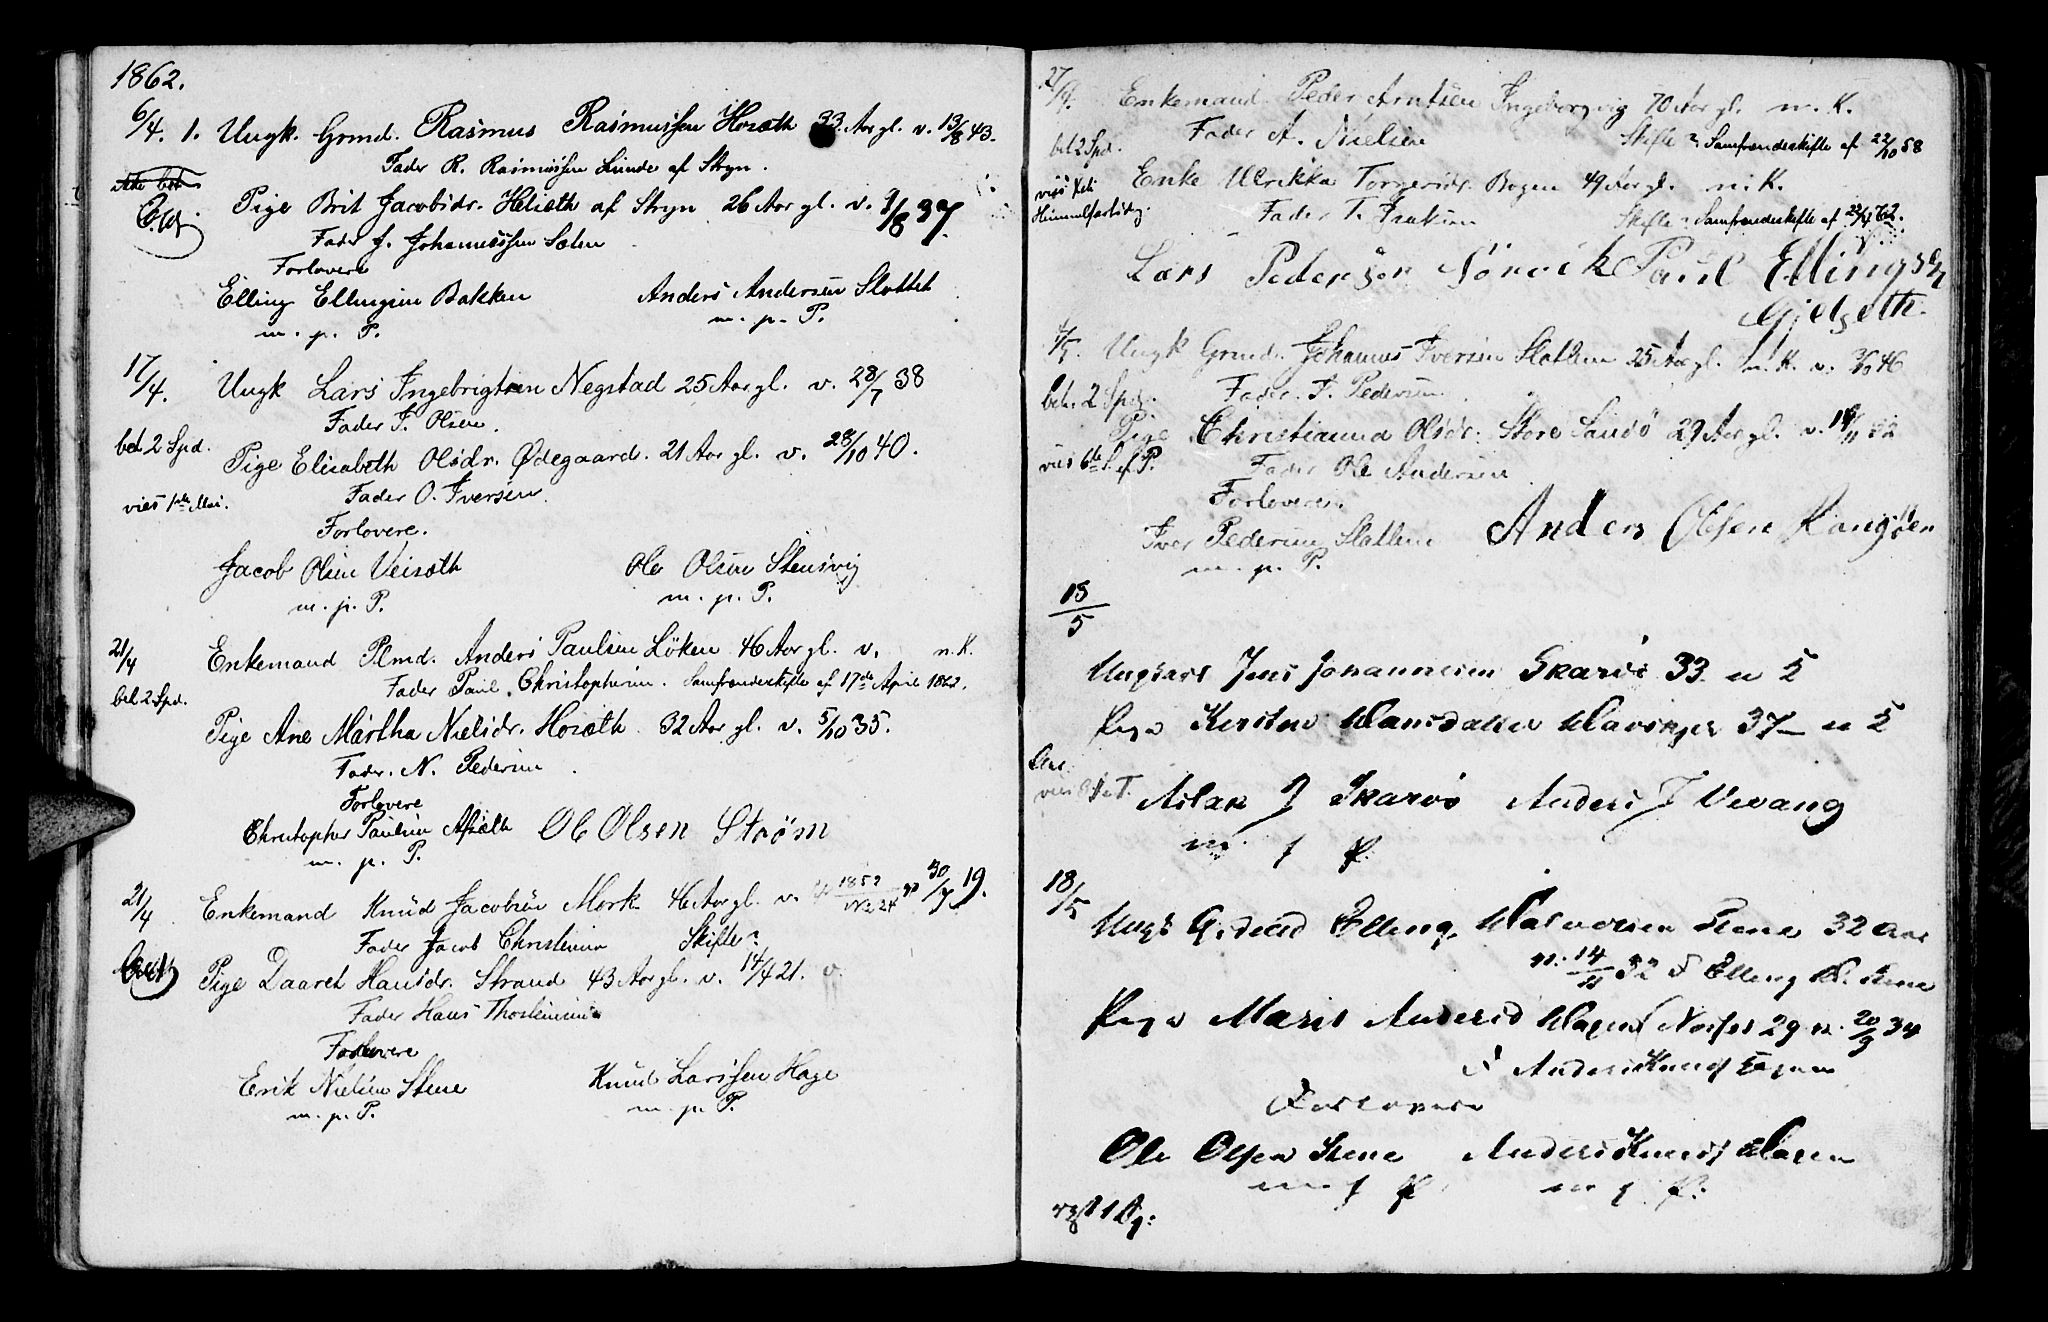 1862.
6/4. 1. Ungk. Grmd. Rasmus Rasmussen Horseth 33 Aar gl. v. 13/8 43.
Fader R. Rasmussen Lunde af Stryn.
ikke bet.
Pige Brit Jacobsdr. Helseth af Stryn 26 Aar gl. v. 9/8 37.
Fader J. Johannessen Sæten
Forlovere
Elling Ellingsen Bakken Anders Andersen Slottet
m. p. P. m. p. P.
17/4. Ungk Lars Ingebrigtsen Negstad 25 Aar gl. v. 28/7 38
Fader I. Olsen.
bet. 2 Spd. Pige Elisabeth Olsdr. Ødegaard. 21 Aar gl. v. 28/10 40.
vies 1ste Mai. Fader O. Iversen.
Forlovere.
Jacob Olsen Veiseth Ole Olsen Stensvig
m. p. P. m. p. P.
21/4 Enkemand Plmd. Anders Paulsen Löken 46 Aar gl. v. n. K.
bet 2 Spd. Fader Paul Christophersen. Samfrændeskifte af 17de April 1862.
Pige Ane Märtha Nielsdr. Horseth 32 Aar gl. v. 5/10 35.
Fader. N. Pedersen
Forlovere
Christopher Paulsen Ole Olsen Strøm
m. p. P.
21/4 Enkemand Knud Jacobsen Mork 46 Aar gl. v. 30/7 19.
Fader Jacob Christensen Skifte?
Pige Daaret Hansdr. Strand 43 Aar gl. v. 14/4 21.
Fader Hans Thostensen
Forlovere
Erik Nielsen Stene Knud Larssen Hage
m. p. P. m. p. P.
27/4. Enkemand Peder Arntsen Ingeborgvig 70 Aar gl. n. K.
bet 2 Spd. Fader A. Nielsen Skifte? Samfrændeskifte af 22/10 58
vies Kr.
Himmelfartsdag. Enke Ulrikka Torgersdr. Bogen 49 Aar gl. n. K.
Fader T. Isaksen Skifte: Samfrændeskifte af 62.
Lars Pedersen Sörvik Paul Ellingsen
Gjelseth.
4/5. Ungk Grmd. Johannes Iversen Slatlem 25 Aar gl. n. K. v. 46
bet. 2 Spd. Fader. I. Pedersen
Pige Christianna Olsdr. Store Sandö 29 Aar gl. v. 32
Fader Ole Andersen
Forlovere
Iver Pedersen Slatlem Anders Olsen
m. p. P.
15/5
Ungkarl Jens Johannesen Skarsö 33 u 5
Pige Kirsten Hansdatter 37 u 5
Aslak J Skarsö Anders J Vevang
m f P.
18/5 Ungk Gdmd Elling Halvorsen Stene 32 Aar
n. 14/11 32 F Elling
Pige Marit Andersd Hagen 29 n. 20/9 34
F Anders Knuds
Forlovere
Ole Olsen Stene Anders Knuds Hagen
m f P m f P.